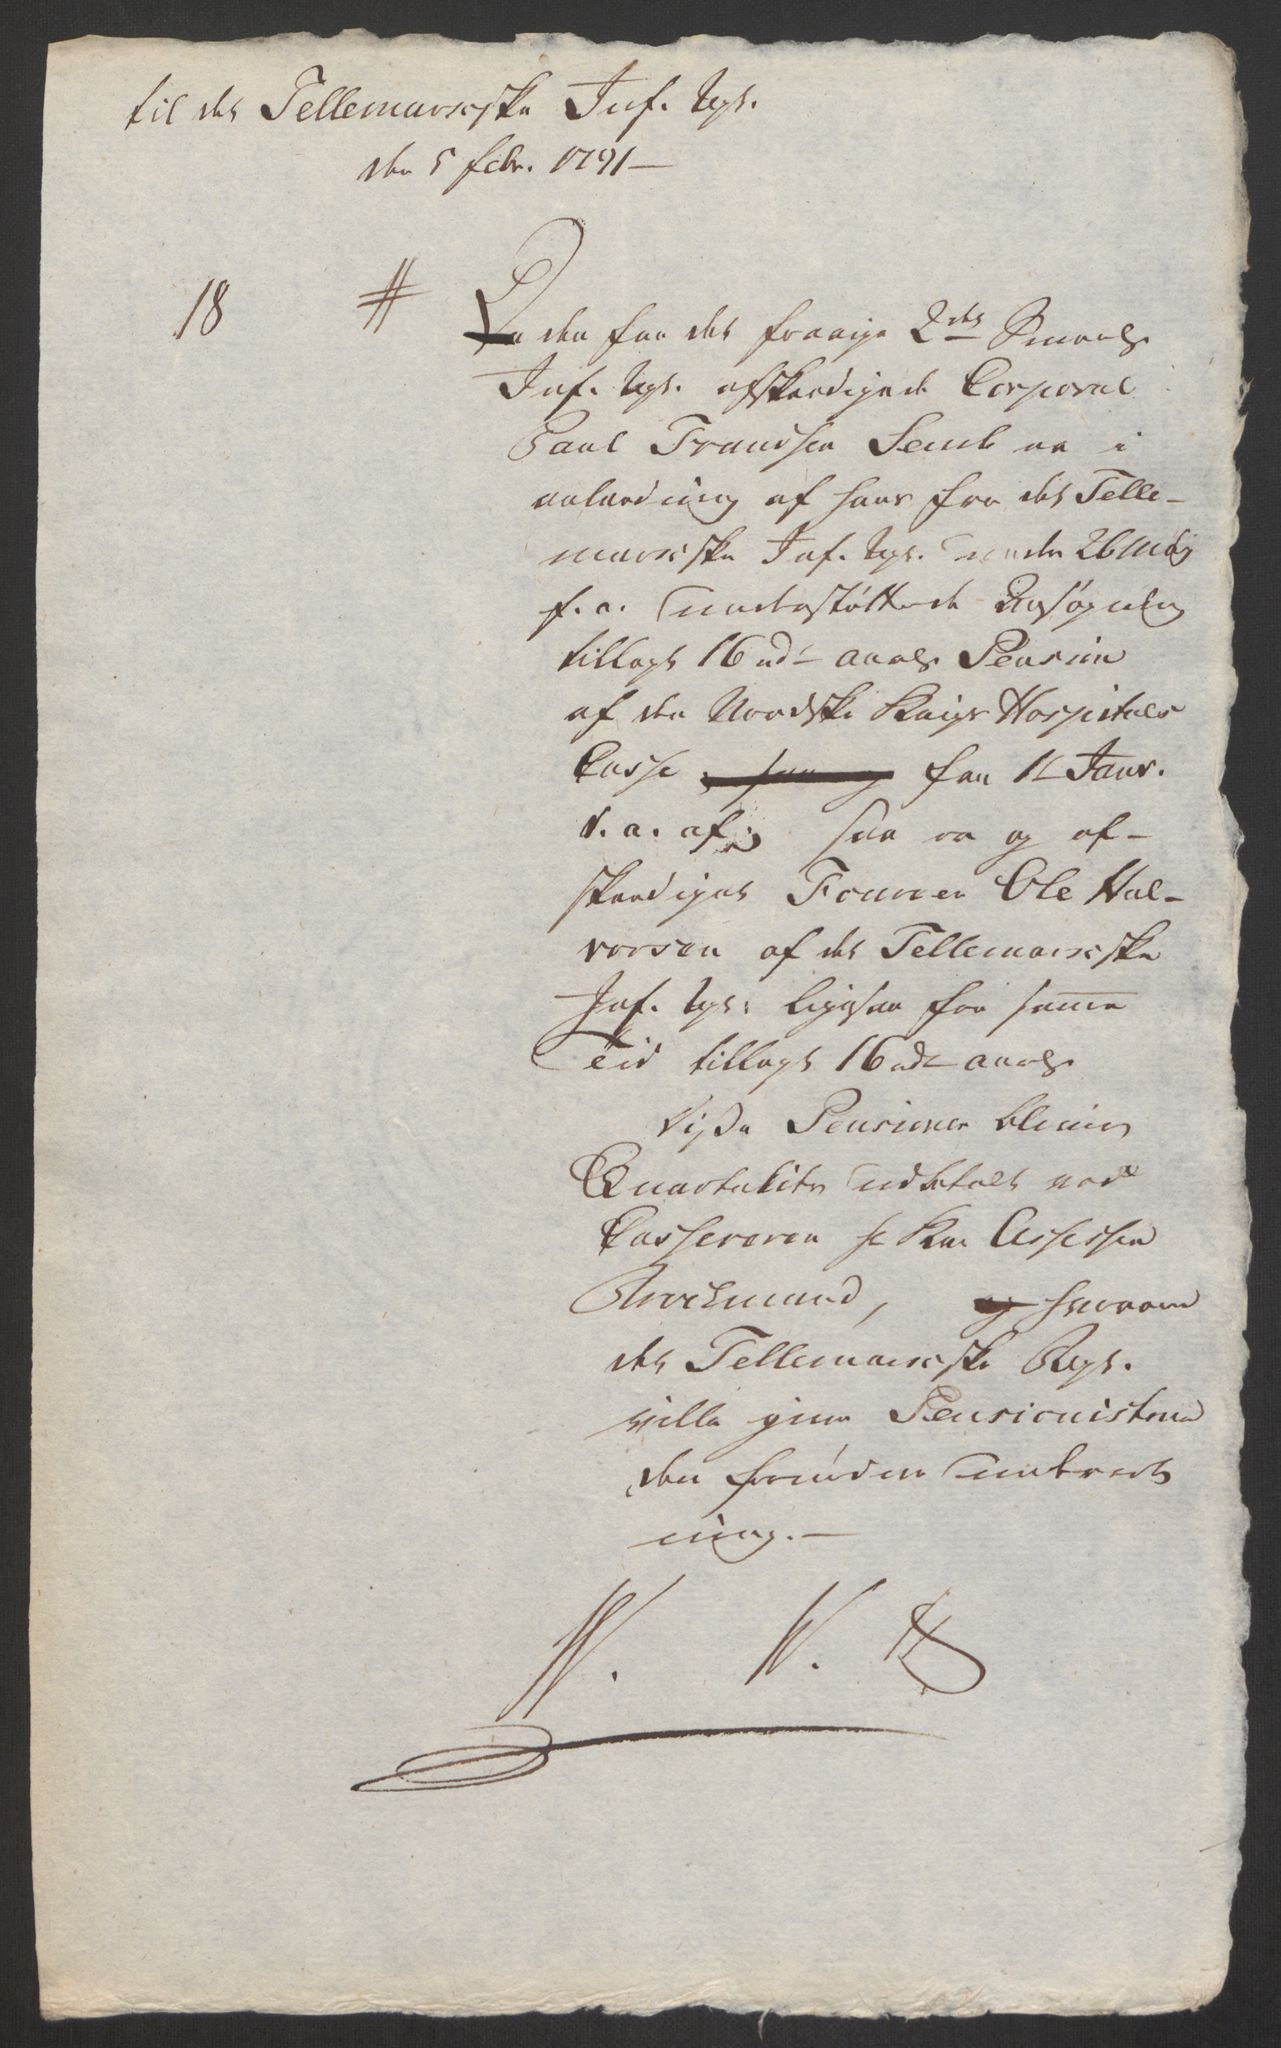 til det Tellemarkske Inf. Regt.
den 5 febr. 1791 —
18 #
Da den fra det forrige 2det Smaals
Inf. Regt. afskeedigede Corporal
Paul Frandsen Semb er i
anledning af hans fra det Telle-
markske Inf. Regt. under 26 Maj
f. a. understöttede Ansögning
tillagt 16 rd aarl. Pension
af den Nordske Krigs Hospitals
Casse fra 1te Janr.
d. a. af; saa er og af-
skeediget Fourier Ole Hal-
vorsen af det Tellemarkske
Inf. Regt. ligesaa fra samme
Tid tillagt 16 rd aarl.
disse Pensioner bliver
Quartaliter udbetalt ved
Cassereren Hr Krr Assessor
Brochmand, hvorom
det Tellemarkske Regt.
ville give Pensionisterne
den fornödne underret
ning. —